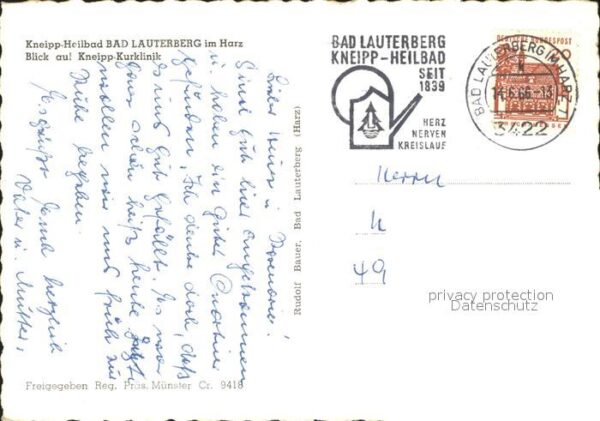 Kneipp-Heilbad BAD LAUTERBERG im Harz
Blick auf Kneipp-Kurklinik
BAD LAUTERBERG
KNEIPP-HEILBAD
SEIT
1839
HERZ
NERVEN
KREISLAUF
DEUTSCHE BUNDESPOST
BAD LAUTERBERG IM HARZ 1
14.6.66-13
3422
Liebe u.
Sind gut hier angekommen
u. haben ein gutes Quartier
gefunden. Ich denke doch, daß
es uns gut gefällt. Es war
schon heiß heute. Jetzt
wollen wir uns früh zur
Ruhe begeben.
Es grüßt Euch herzlich
Vater u. Mutter.
Rudolf Bauer, Bad Lauterberg (Harz)
Herrn
49
privacy protection
Datenschutz
Freigegeben Reg. Präs. Münster Cr. 9418